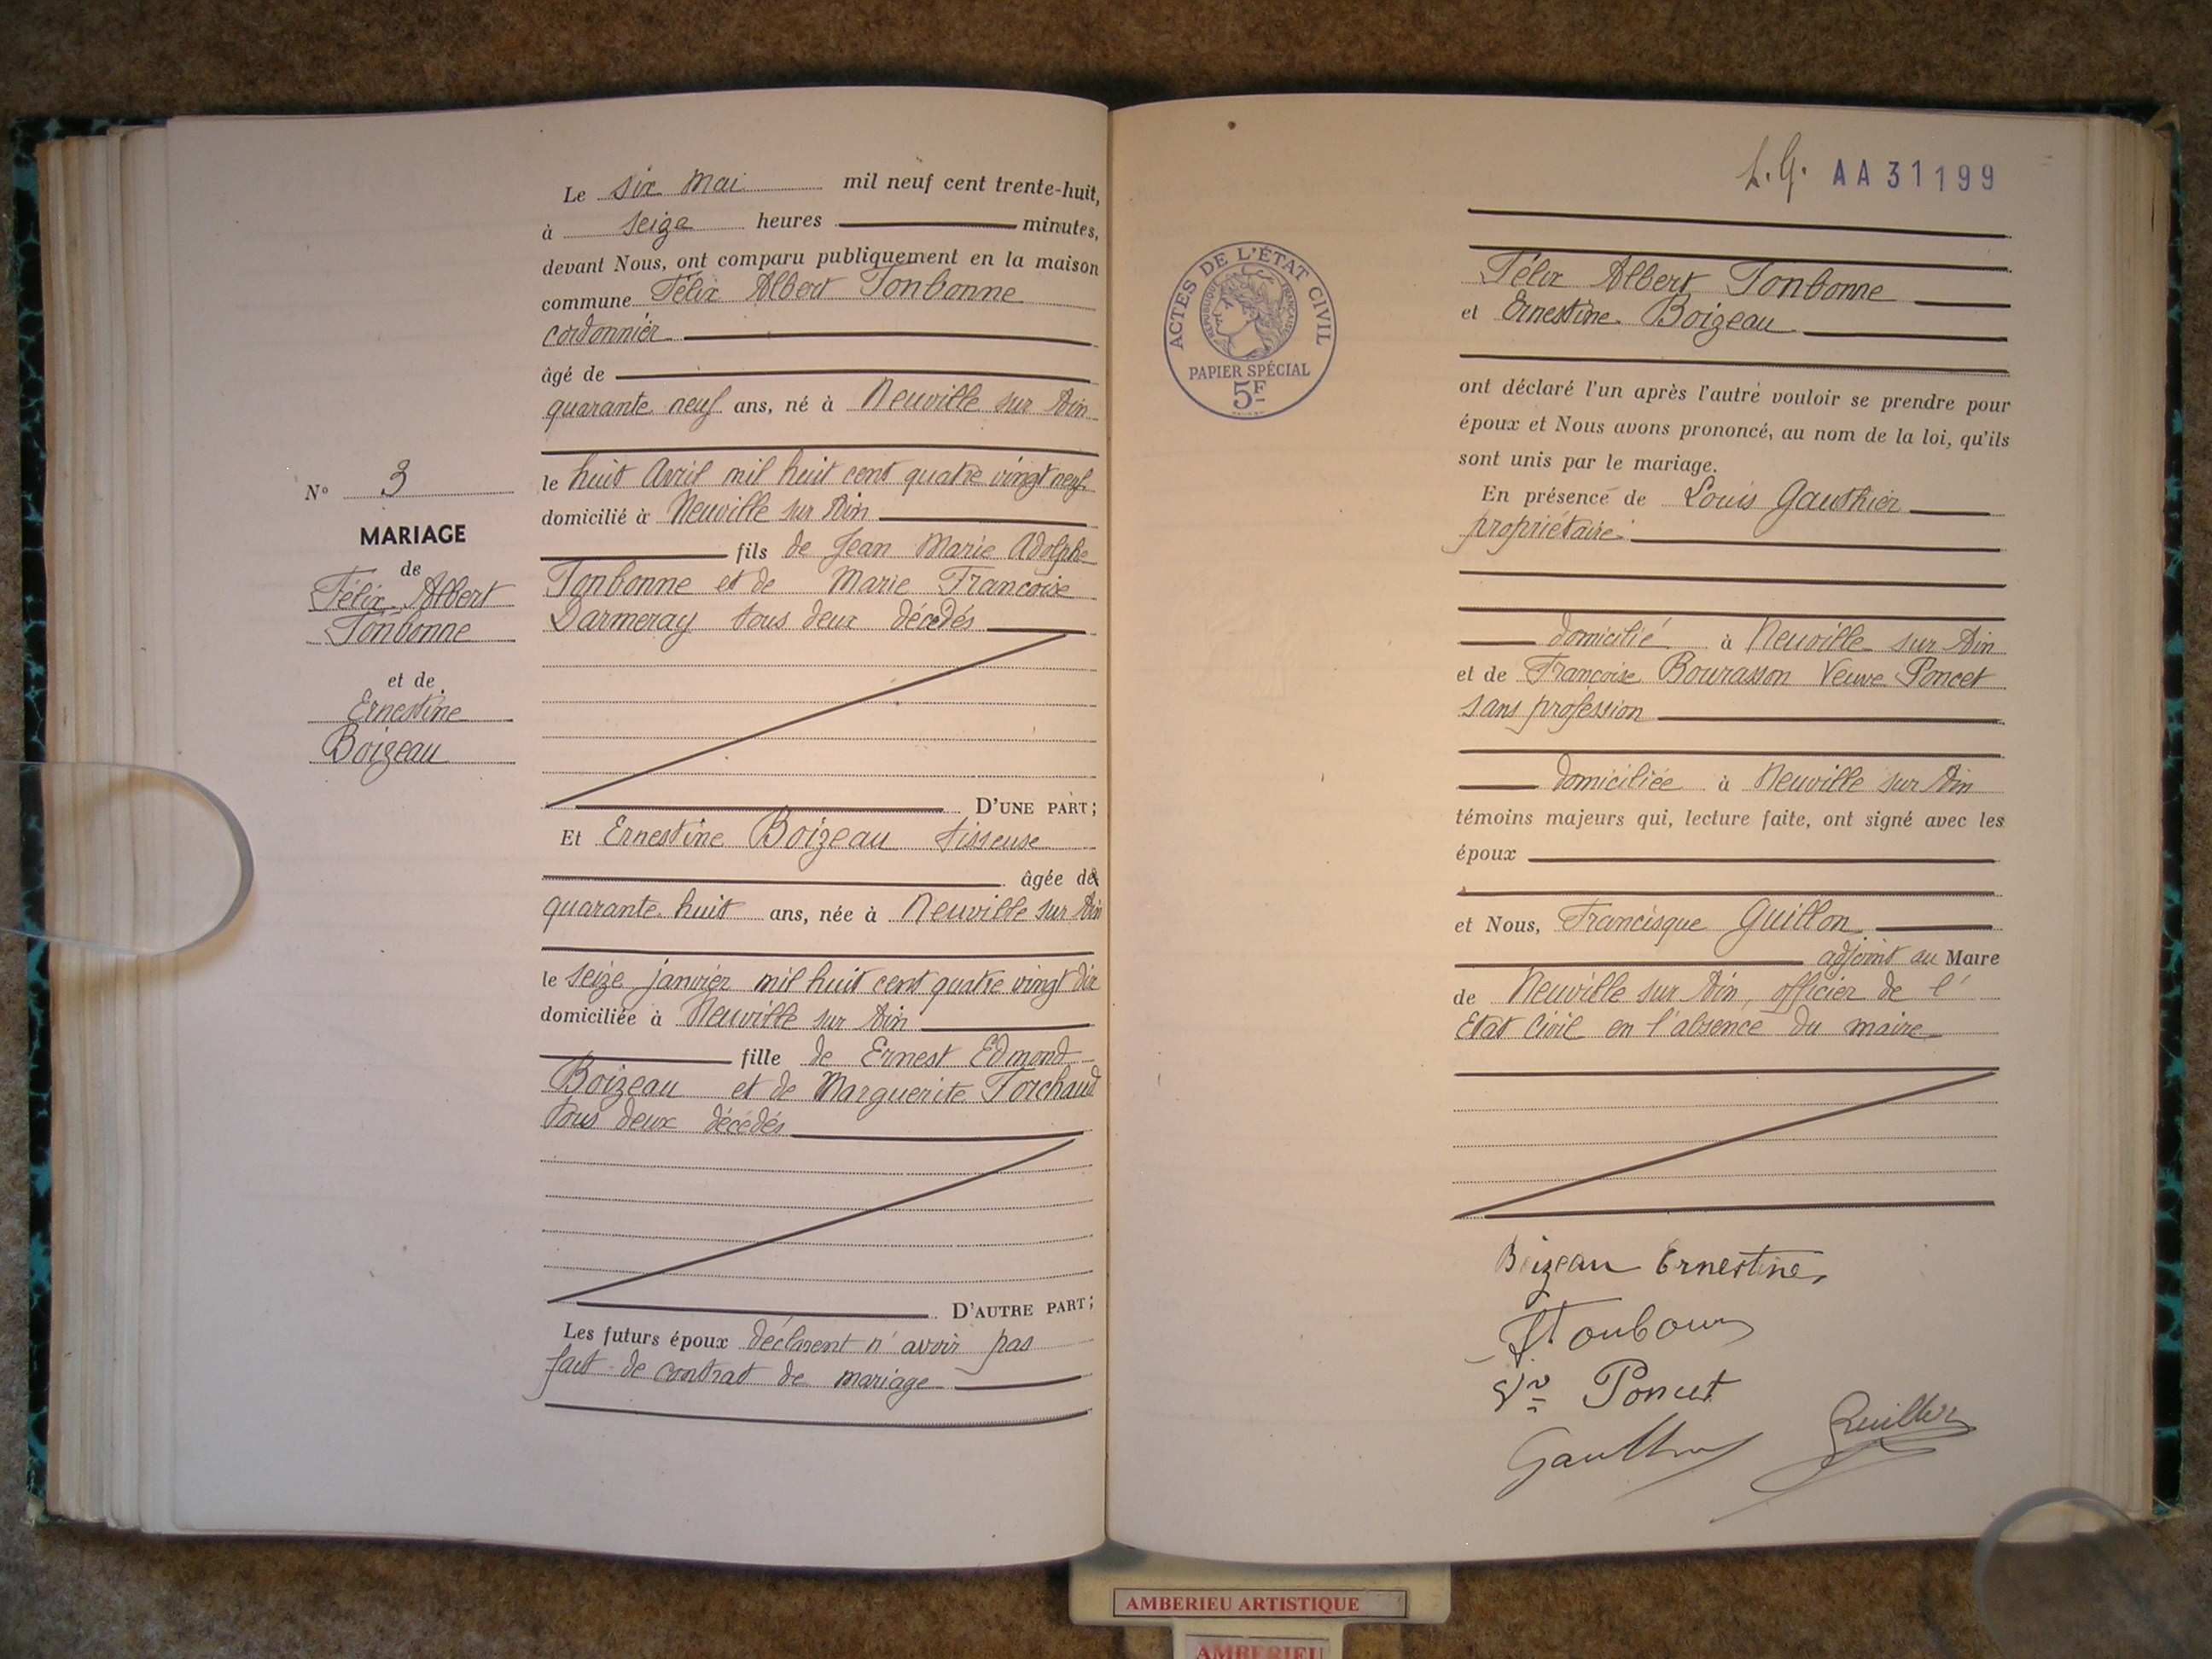 Le six Mai mil neuf cent trente-huit,
à seize heures minutes,
devant Nous, ont comparu publiquement en la maison
commune Félix Albert Tonbonne
cordonnier
âgé de
quarante neuf ans, né à Neuville sur Ain
le huit Avril mil huit cent quatre vingt neuf
domicilié à Neuville sur Ain
fils de Jean Marie Adolphe
Tonbonne et de Marie Françoise
Darmeray tous deux décédés
D'UNE PART;
Et Ernestine Boizeau tisseuse
âgée de
quarante huit ans, née à Neuville sur Ain
le seize janvier mil huit cent quatre vingt dix
domiciliée à Neuville sur Ain
fille de Ernest Edmond
Boizeau et de Marguerite Forchaud
tous deux décédés
D'AUTRE PART;
Les futurs époux déclarent n'avoir pas
fait de contrat de mariage
No 3
MARIAGE
de
Félix Albert
Tonbonne
et de
Ernestine
Boizeau
L.G. AA31199
ACTES DE L'ÉTAT CIVIL
RÉPUBLIQUE FRANÇAISE
PAPIER SPÉCIAL
5F
Félix Albert Tonbonne
et Ernestine Boizeau
ont déclaré l'un après l'autre vouloir se prendre pour
époux et Nous avons prononcé, au nom de la loi, qu'ils
sont unis par le mariage.
En présence de Louis Gauthier
propriétaire
domicilié à Neuville sur Ain
et de Françoise Bourasson Veuve Poncet
sans profession
domiciliée à Neuville sur Ain
témoins majeurs qui, lecture faite, ont signé avec les
époux
et Nous, Francisque Guillon
adjoint au Maire
de Neuville sur Ain, officier de l'
Etat Civil en l'absence du maire
Boizeau Ernestine
Vve Poncet
Gauthier
Guillon
AMBERIEU ARTISTIQUE
AMBERIEU